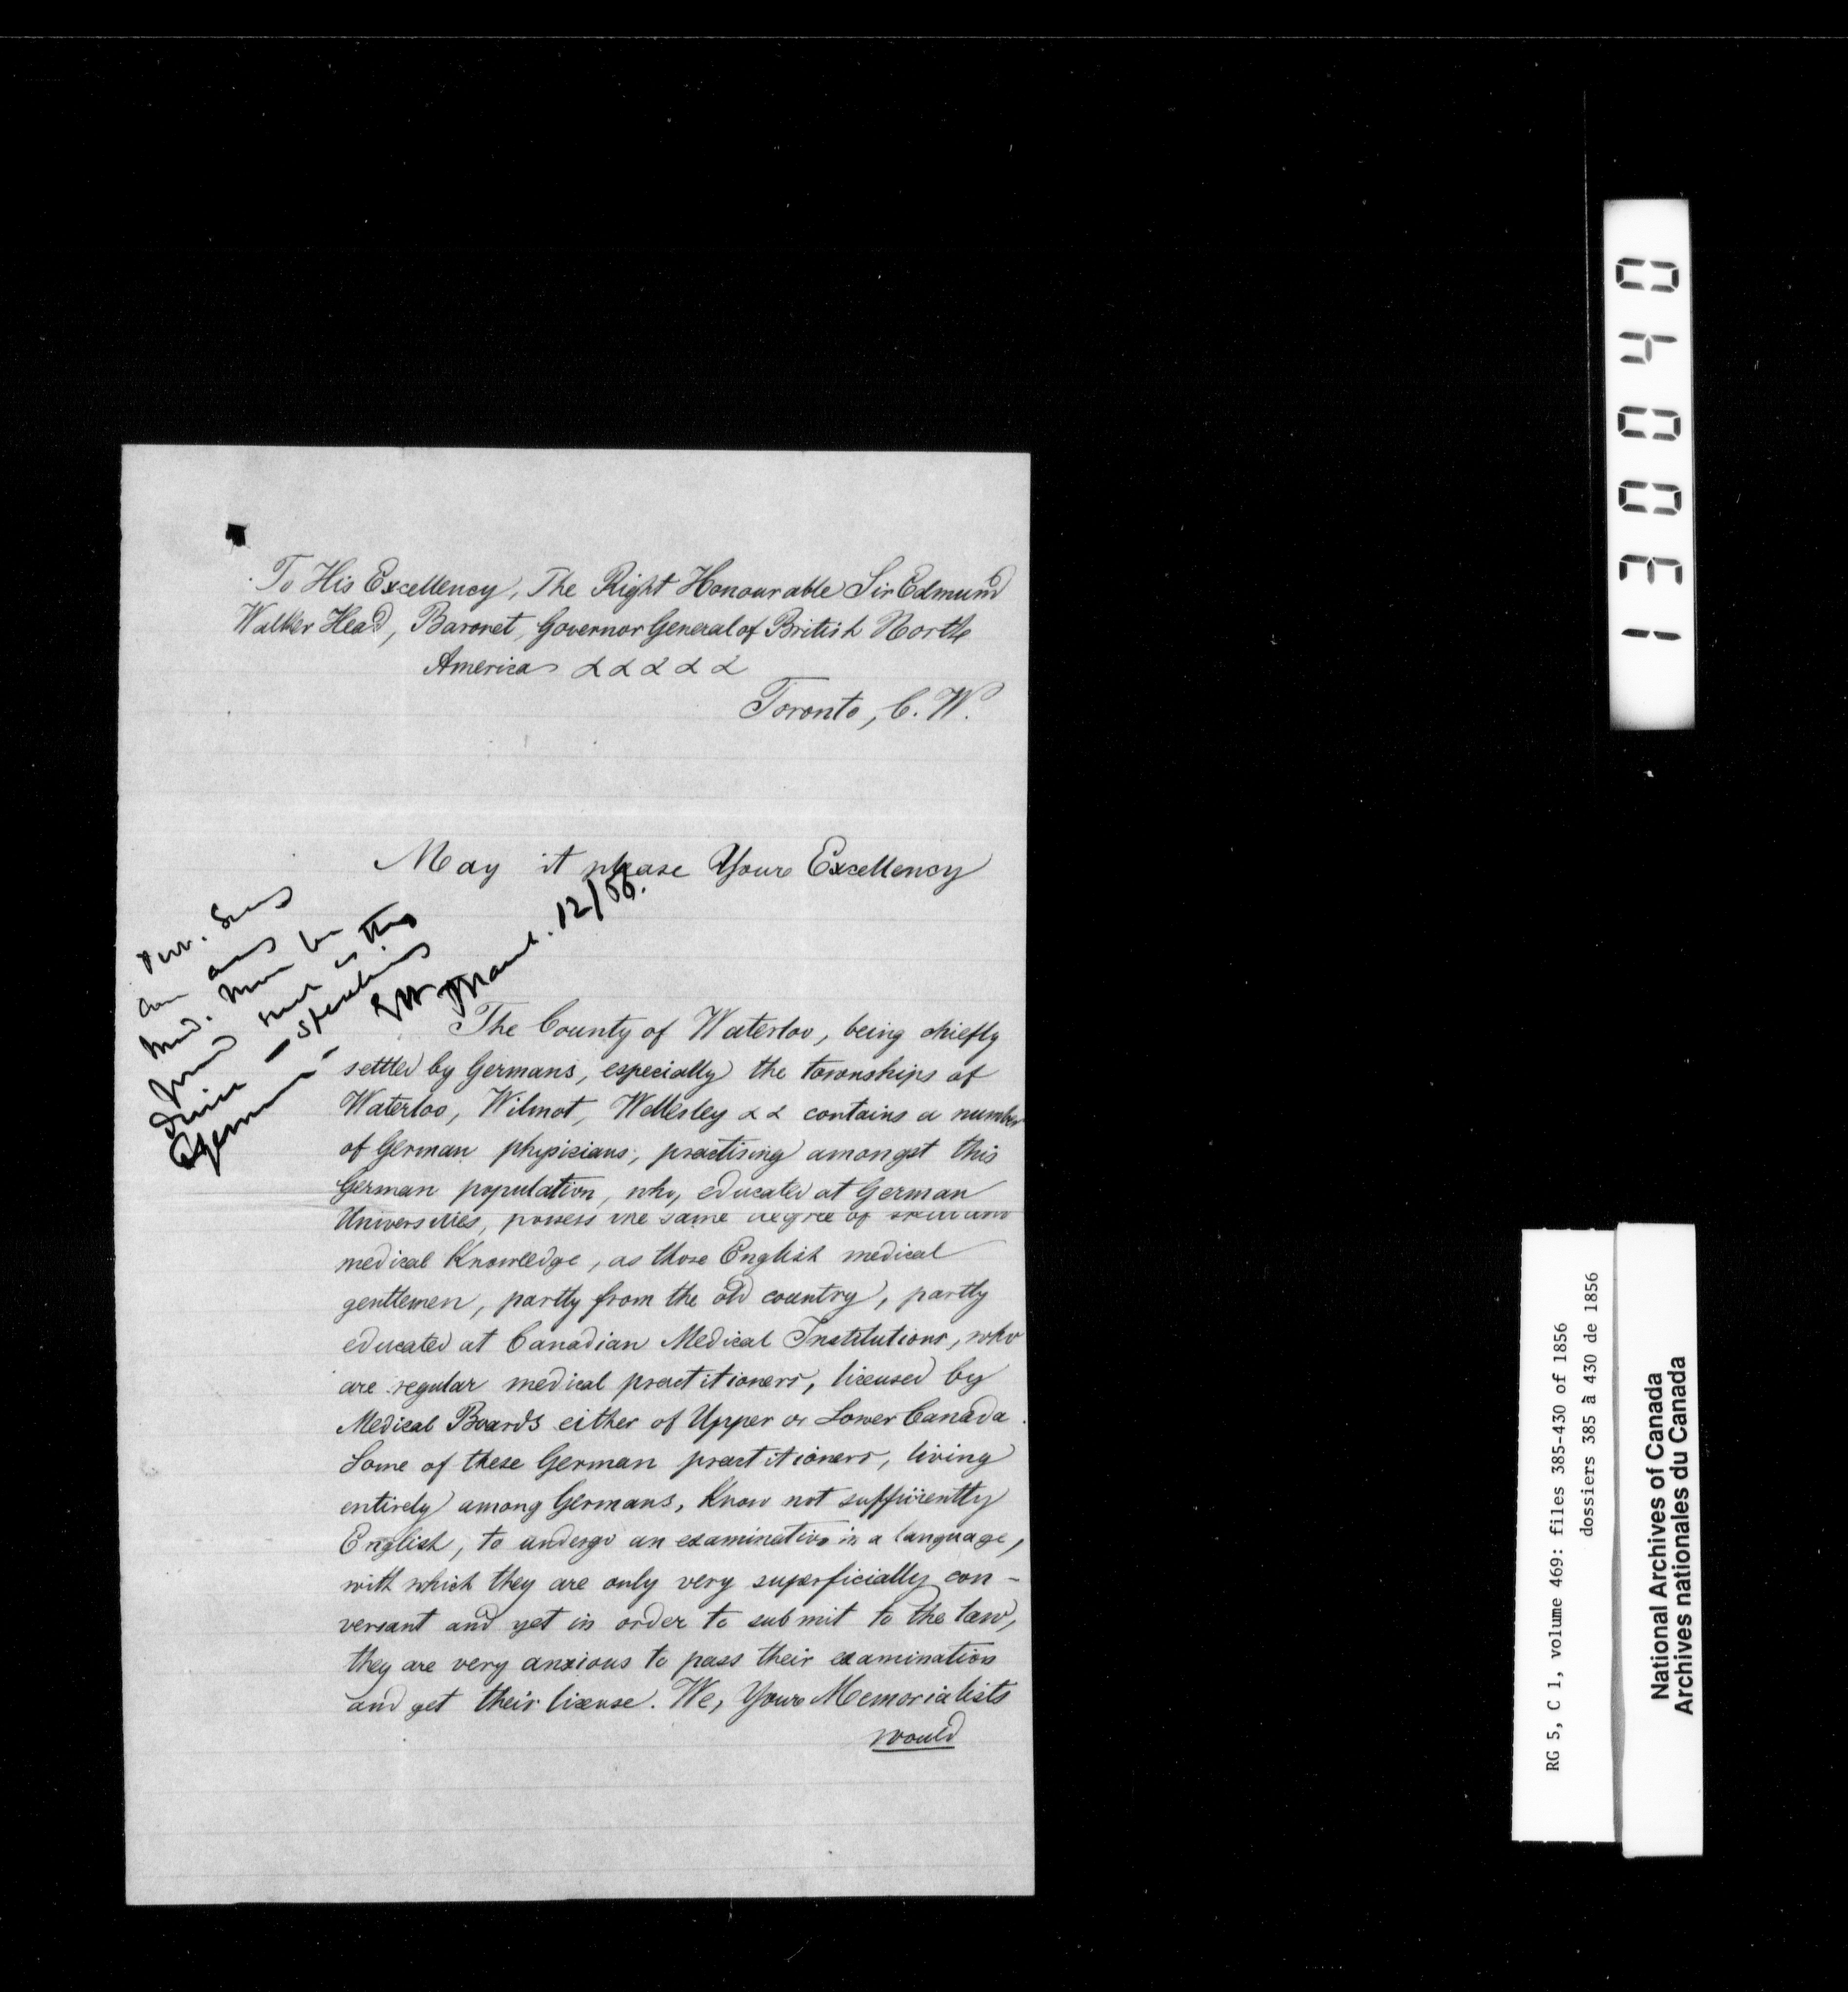 To His Excellency, The Right Honourable Sir Edmund
Walker Head, Baronet, Governor General of British North
America & & & & &
Toronto, C. W.
May it please Your Excellency
March. 12/56.
Med.
speaking
German
The County of Waterloo, being chiefly
settled by Germans, especially the townships of
Waterloo, Wilmot, Wellesley & & contains a number
of German physicians, practising amongst this
German population, who, educated at German
Universities, possess the same degree of skill and
medical Knowledge, as those English medical
gentlemen, partly from the old country, partly
educated at Canadian Medical Institutions, who
are regular medical practitioners, licensed by
Medical Boards either of Upper or Lower Canada.
Some of these German practitioners, living
entirely among Germans, Know not sufficiently
English, to undergo an examination in a language,
with which they are only very superficially con-
versant and yet in order to submit to the law,
they are very anxious to pass their examination
and get their license. We, Your Memorialists
would
130040
RG 5, C 1, volume 469: files 385-430 of 1856
dossiers 385 à 430 de 1856
National Archives of Canada
Archives nationales du Canada